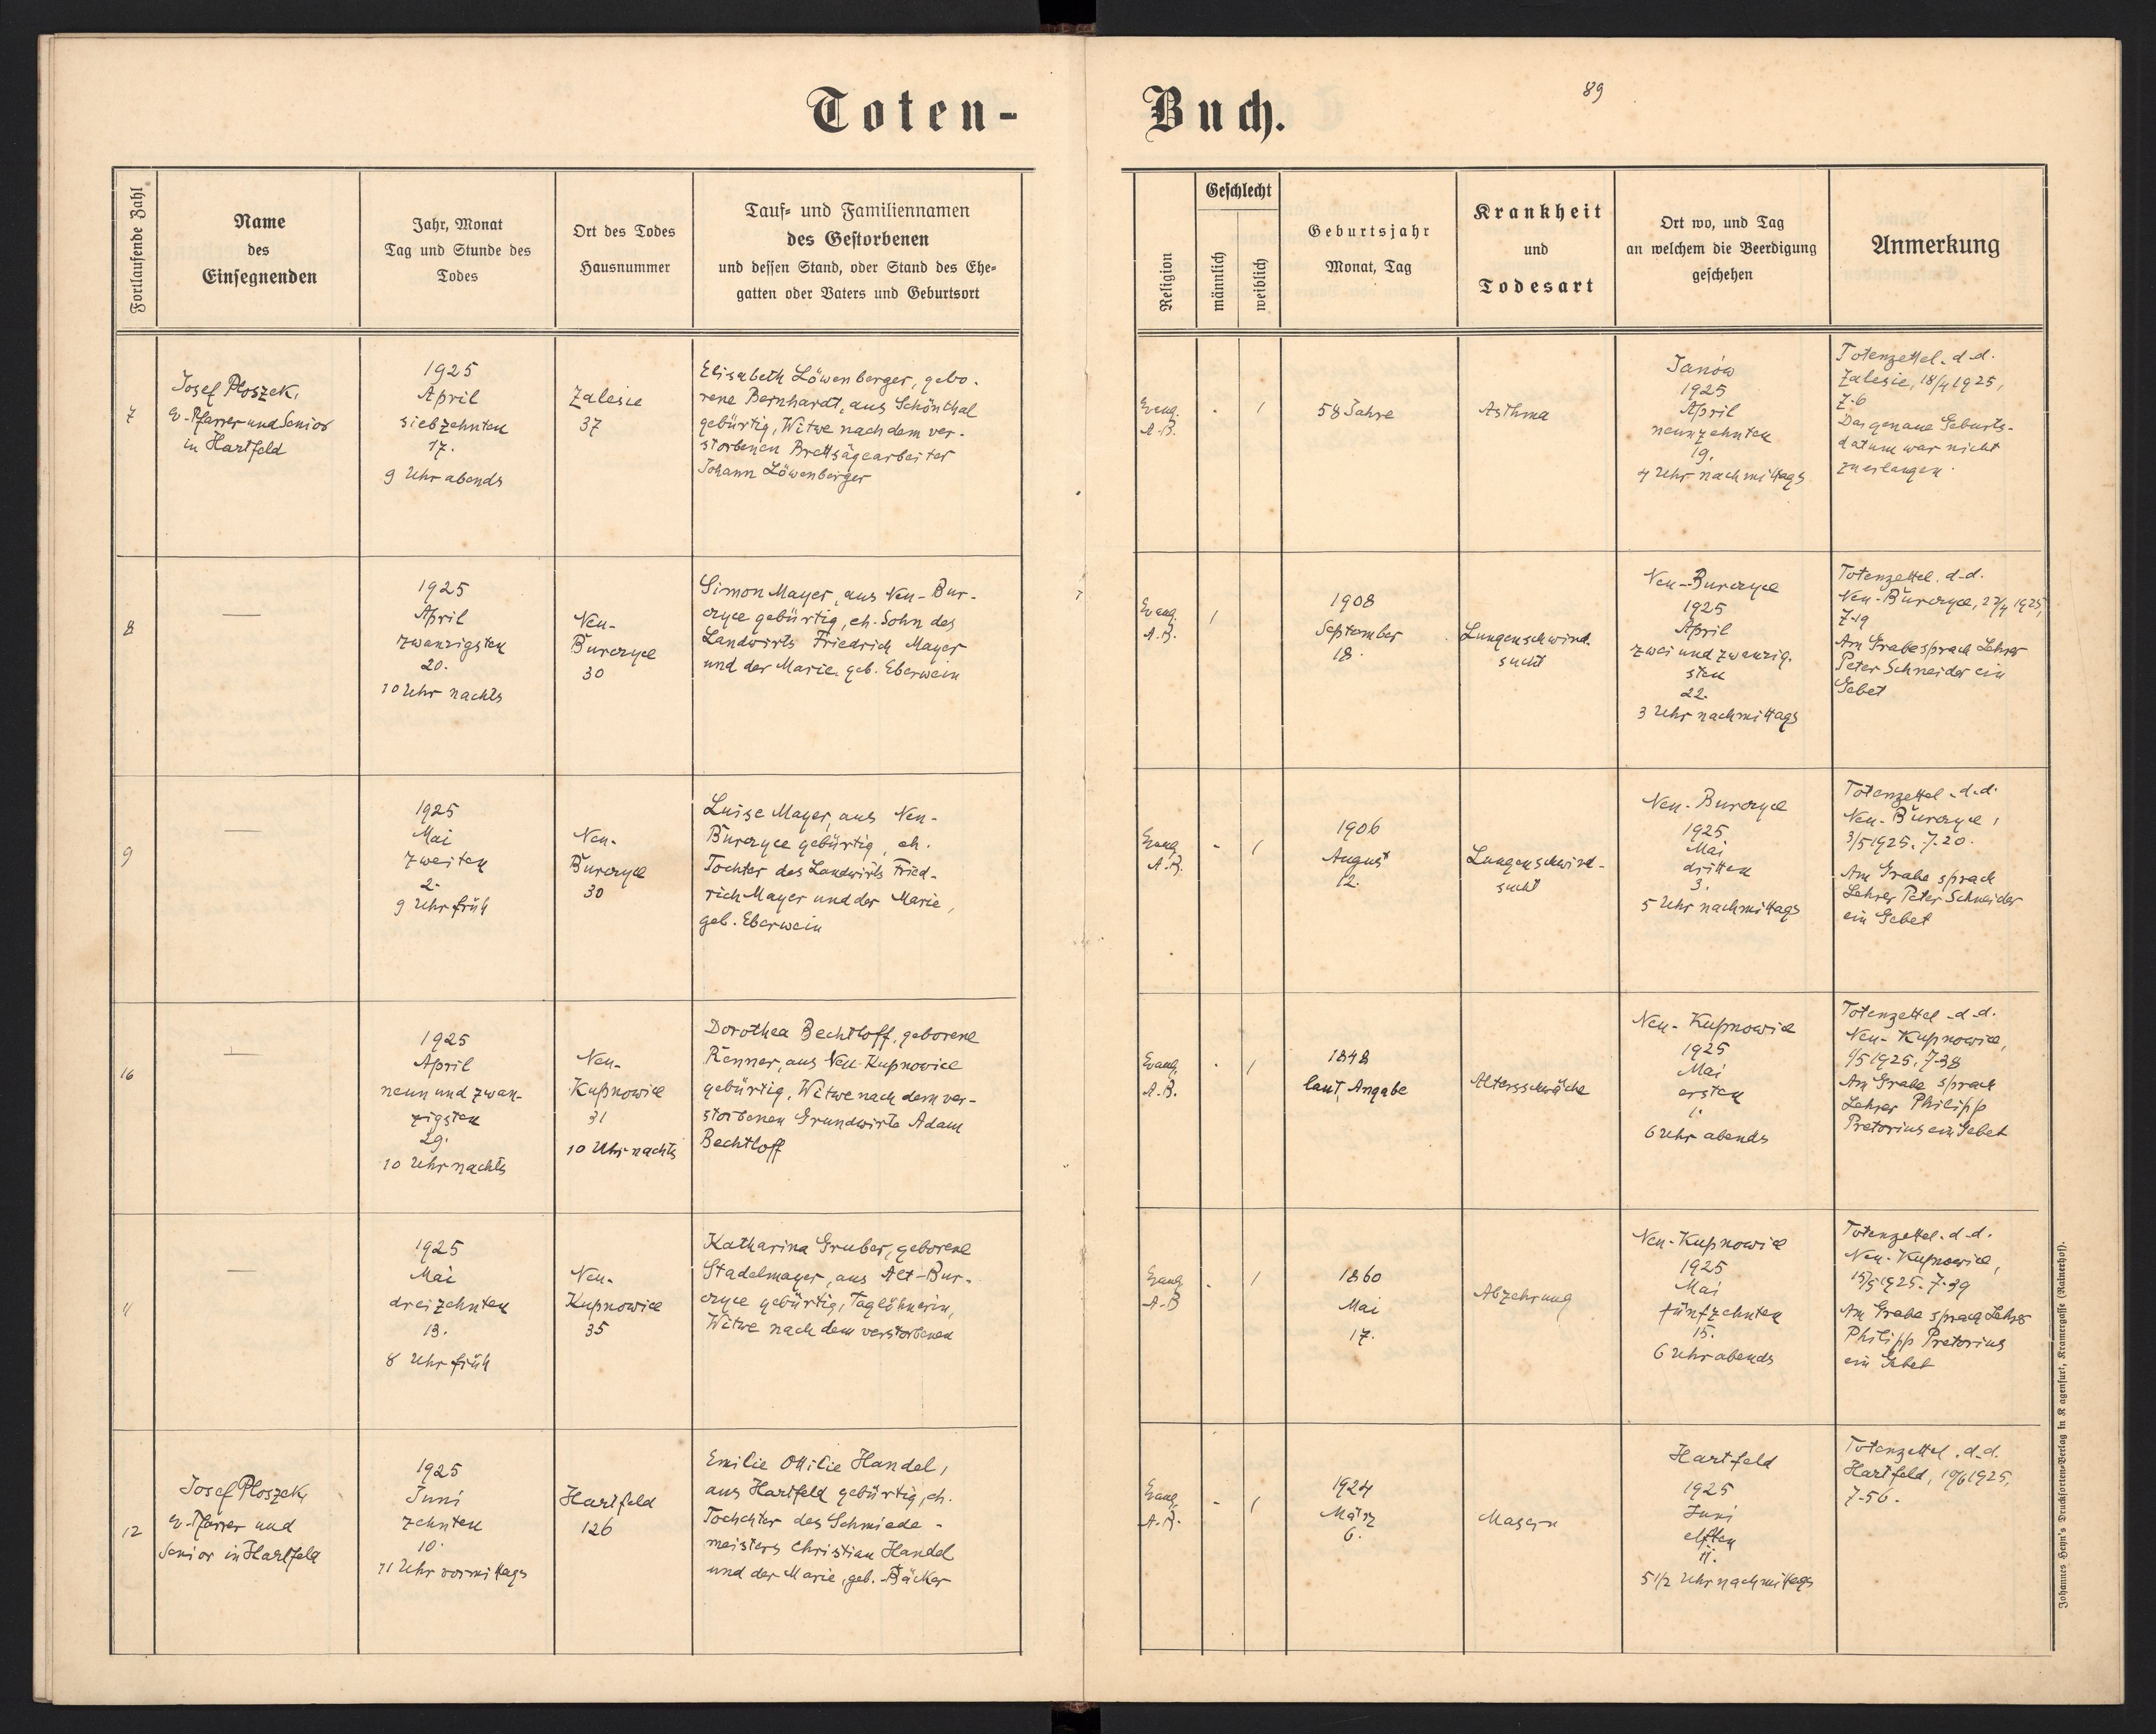 Toten-
Buch.
89
Fortlaufende Zahl
Name
des
Einsegnenden
Jahr, Monat
Tag und Stunde des
Todes
Ort des Todes
Hausnummer
Tauf- und Familiennamen
des Gestorbenen
und dessen Stand, oder Stand des Ehe-
gatten oder Vaters und Geburtsort
Religion
Geschlecht
männlich
weiblich
Geburtsjahr
Monat, Tag
Krankheit
und
Todesart
Ort wo, und Tag
an welchem die Beerdigung
geschehen
Anmerkung
7
Josef Ploszek,
ev. Pfarrer und Senior
in Hartfeld
1925
April
siebzehnten
17.
9 Uhr abends
Zalesie
37
Elisabeth Löwenberger, gebo-
rene Bernhardt, aus Schönthal
gebürtig, Witwe nach dem ver-
storbenen Brettsägearbeiter
Johann Löwenberger
Evang.
A.B.
- 1
58 Jahre
Asthma
Janów
1925
April
neunzehnten
19.
4 Uhr nachmittags
Totenzettel d-d.
Zalesie, 18/4 1925,
Z-6
Das genaue Geburts-
datum war nicht
zu erlangen.
8
—
1925
April
zwanzigsten
20.
10 Uhr nachts
Neu-
Burczyce
30
Simon Mayer, aus Neu-Bur-
czyce gebürtig, eh. Sohn des
Landwirts Friedrich Mayer
und der Marie, geb. Eberwein
Evang.
A.B.
1
1908
September
18.
Lungenschwind-
sucht
Neu-Burczyce
1925
April
zwei und zwanzig-
sten
22.
3 Uhr nachmittags
Totenzettel d-d.
Neu-Burczyce, 22/4 1925,
Z-19
Am Grabe sprach Lehrer
Peter Schneider ein
Gebet
9
—
1925
Mai
zweiten
2.
9 Uhr früh
Neu-
Burczyce
30
Luise Mayer, aus Neu-
Burczyce gebürtig, eh.
Tochter des Landwirts Fried-
rich Mayer und der Marie,
geb. Eberwein
Evang.
A.B.
- 1
1906
August
12.
Lungenschwind-
sucht
Neu-Burczyce
1925
Mai
dritten
3.
5 Uhr nachmittags
Totenzettel d-d.
Neu-Burczyce,
3/5 1925, Z-20.
Am Grabe sprach
Lehrer Peter Schneider
ein Gebet
10
—
1925
April
neun und zwan-
zigsten
29.
10 Uhr nachts
Neu-
Kupnowice
31
10 Uhr nachts
Dorothea Bechtloff, geborene
Renner, aus Neu-Kupnowice
gebürtig, Witwe nach dem ver-
storbenen Grundwirte Adam
Bechtloff
Evang.
A.B.
- 1
1848
laut Angabe
Altersschwäche
Neu-Kupnowice
1925
Mai
ersten
1.
6 Uhr abends
Totenzettel d-d.
Neu-Kupnowice,
1/5 1925, Z-38
Am Grabe sprach
Lehrer Philipp
Pretorius ein Gebet
11
—
1925
Mai
dreizehnten
13.
8 Uhr früh
Neu-
Kupnowice
35
Katharina Gruber, geborene
Stadelmayer, aus Alt-Bur-
czyce gebürtig, Taglöhnerin,
Witwe nach dem verstorbenen
Evang
A.B
- 1
1860
Mai
17.
Abzehrung
Neu-Kupnowice
1925
Mai
fünfzehnten
15.
6 Uhr abends
Totenzettel d-d.
Neu-Kupnowice,
15/5 1925, Z-39
Am Grabe sprach Lehrer
Philipp Pretorius
ein Gebet
12
Josef Ploszek,
ev. Pfarrer und
Senior in Hartfeld
1925
Juni
zehnten
10.
11 Uhr vormittags
Hartfeld
126
Emilie Ottilie Handel,
aus Hartfeld gebürtig, eh.
Tochchter des Schmiede-
meisters Christian Handel
und der Marie, geb. Bäcker
Evang.
A.B.
- 1
1924
März
6.
Masern
Hartfeld
1925
Juni
elften
11.
5 1/2 Uhr nachmittags
Totenzettel d-d.
Hartfeld, 10/6 1925,
Z-56.
Johannes Heyn's Drucksorten-Verlag in Klagenfurt, Kramergasse (Rainerhof).